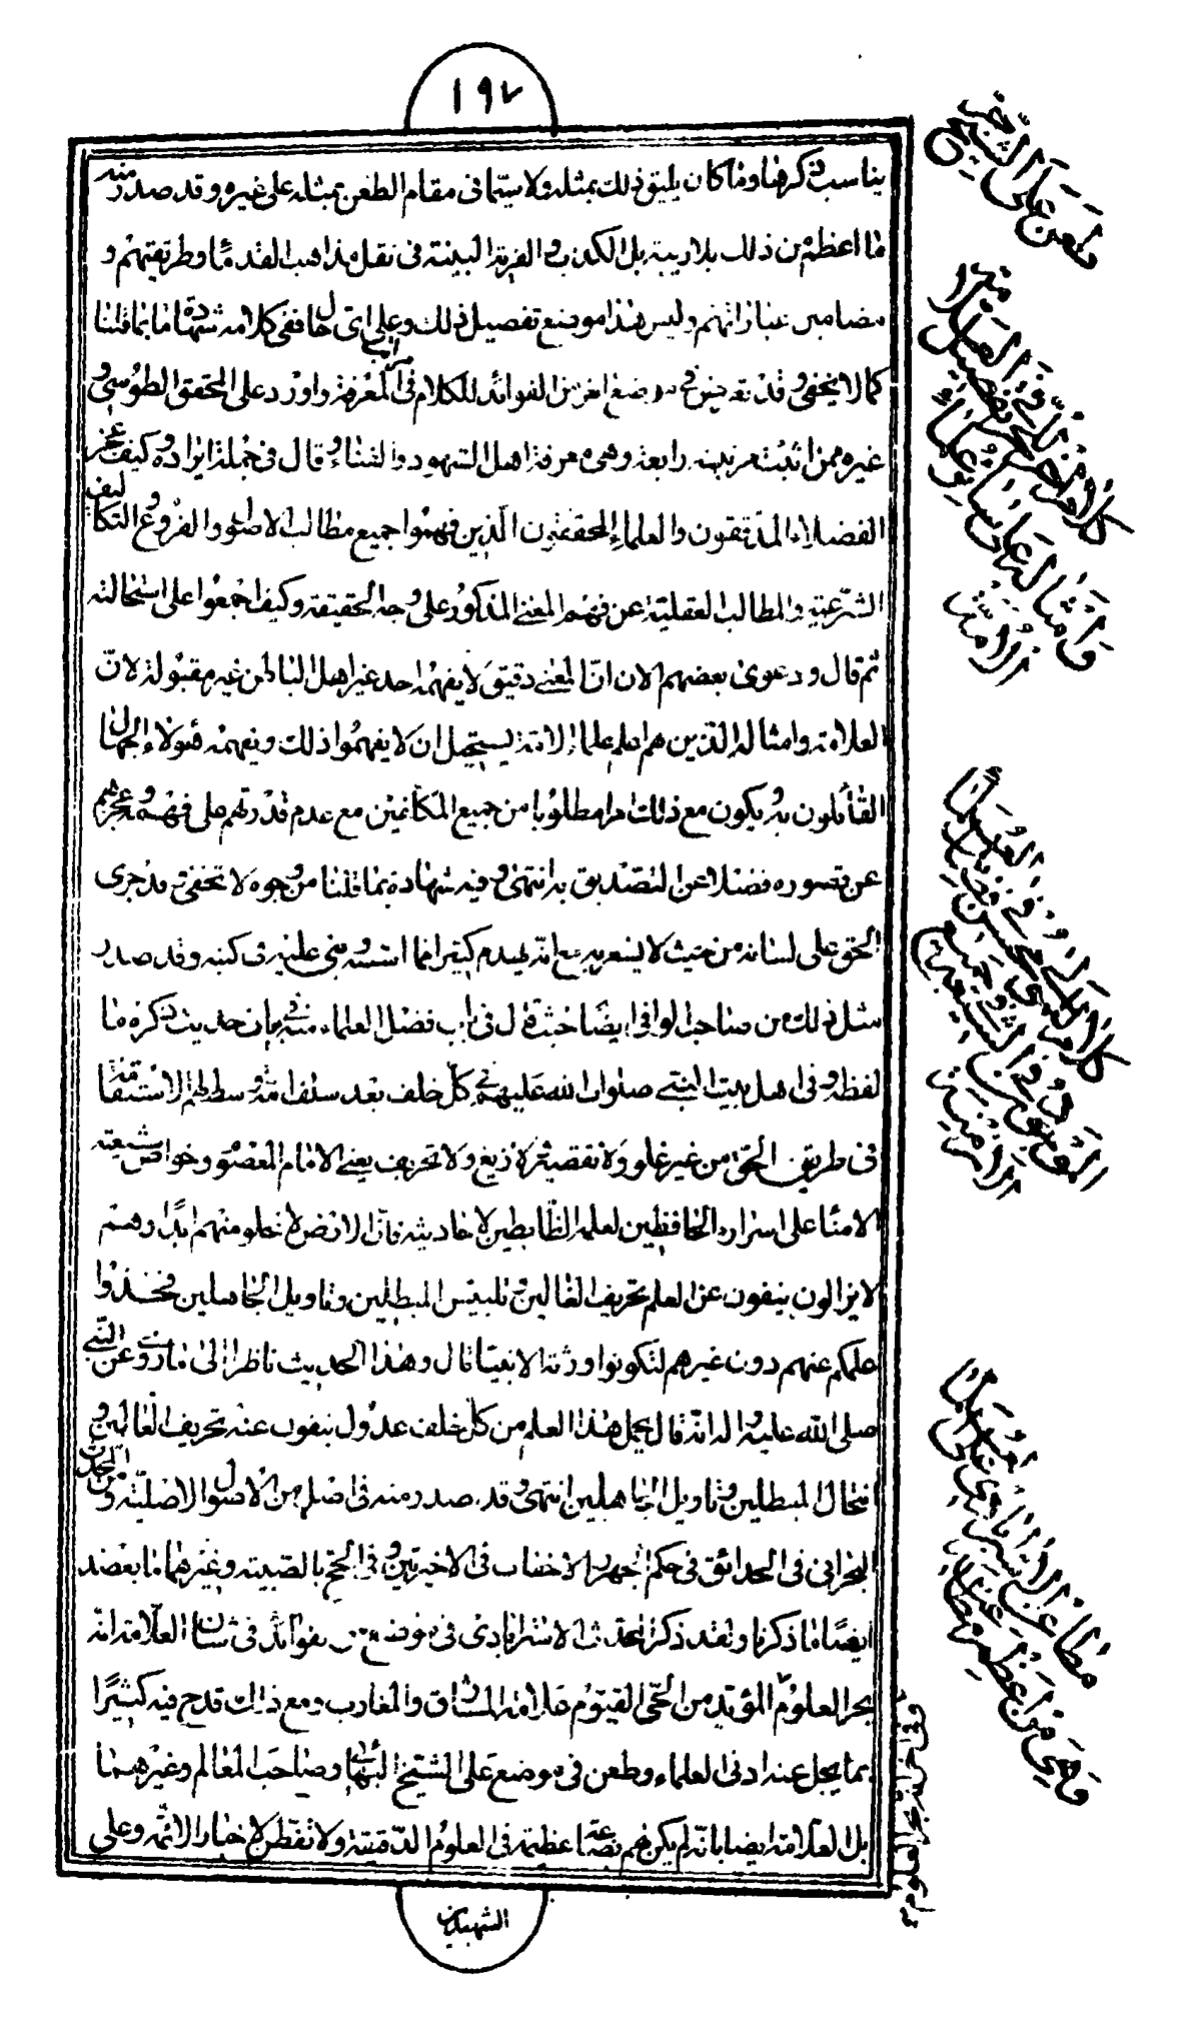 ١٩٧
يناسب ذكرها وما كان يليق ذلك بمثله ولا سيما فى مقام الطعن بمثله على غيره وقد صدر منه
ما اعظم من ذلك بلا ريبة بل الكذب والفرية البينة فى نقل مذاهب القدماء وطريقتهم و
مضامين عباراتهم وليس هذا موضع تفصيل ذلك وعلى اى حال ففى كلامه شهادة ما بما قلنا
كما لا يخفى وقد فى موضع اخر من الفوائد للكلام فى المعرفة واورد على المحقق الطوسى و
غيره ممن اثبت مرتبة رابعة وهى معرفة اهل الشهود والفناء وقال فى جملة ايراده كيف عجز
الفضلاء المدققون والعلماء المحققون الذين فهموا جميع مطالب الاصول والفروع والتكاليف
الشرعية والمطالب العقلية عن فهم المعنى المذكور على وجه الحقيقة وكيف اجمعوا على استحالته
ثم قال ودعوى بعضهم الان ان المعنى دقيق لا يفهمه احد غير اهل الباطن غير مقبولة لان
العلامة وامثاله الذين هم اعلم علماء الامة يستحيل ان لا يفهموا ذلك ويفهمه هؤلاء الجهال
القائلون به ويكون مع ذلك امرا مطلوبا من جميع المكلفين مع عدم قدرتهم على فهمه وعجزهم
عن تصوره فضلا عن التصديق به انتهى وفيه شهادة بما قلنا من وجوه لا تخفى قد جرى
الحق على لسانه من حيث لا يشعر به مع انه يهدم كثيرا مما اسسه وبنى عليه فى كتبه وقد صدر
مثل ذلك من صاحب الوافى ايضا حيث قال فى باب فضل العلماء منه فى بيان حديث ذكره ما
لفظه وفى اهل بيت النبى صلوات الله عليهم فى كل خلف بعد سلف امة وسط لهم الاستقامة
فى طريق الحق من غير غلو ولا تقصير ولا زيغ ولا تحريف يعنى الامام المعصوم وخواص شيعته
الامناء على اسراره الحافظين لعلمه الضابطين لاحاديثه فان الارض لا تخلو منهم ابدا وهم
لا يزالون ينفون عن العلم تحريف الغالين وتلبيس المبطلين وتاويل الجاهلين فخذوا
علمكم عنهم دون غيرهم لتكونوا ورثة الانبياء قال وهذا الحديث ناظر الى ما روى عن النبى
صلى الله عليه واله انه قال يحمل هذا العلم من كل خلف عدول ينفون عنه تحريف الغالين و
انتحال المبطلين وتاويل الجاهلين انتهى وقد صدر منه فى اصله من الاصول الاصلية ومن المحدث
البحرانى فى الحدائق فى حكم الجهر والاخفات فى الاخيرتين وفى الحج بالصبية وغيرهما ما يعضد
ايضا ما ذكرنا ولقد ذكر المحدث الاسترابادى فى موضع من فوائد فى شان العلامة انه
بحر العلوم المؤيد من الحى القيوم علامة المشارق والمغارب ومع ذلك قدح فيه كثيرا
بما يجل عنه ادنى العلماء وطعن فى موضع على الشيخ البهائى وصاحب المعالم وغيرهما
بل العلامة ايضا بانه لم يكن لهم بضاعة عظيمة فى العلوم الدقيقة ولا تفطن لاخبار الائمة وعلى
الشهيدين
طعن على الشيخ
كلام منه فى العلامة
وامثاله
كلام الوافى فى العلماء
مطاعن الاسترابادى على
وهى من اعظم
وفى اخر انه بحر العلوم